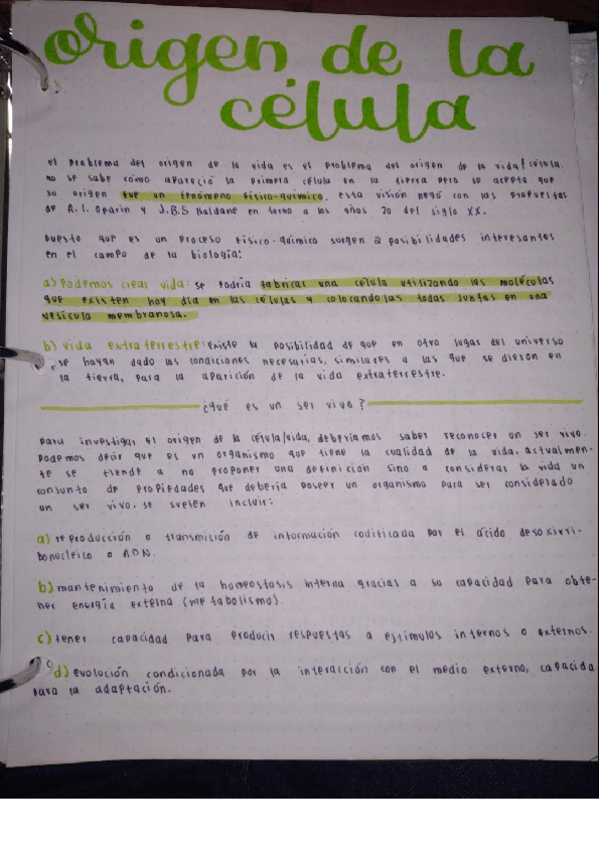 origen de la
célula
el problema del origen de la vida es el problema del origen de la vida/célula.
no se sabe cómo apareció la primera célula en la tierra pero se acepta que
su origen fue un fenómeno físico-químico. esta visión nació con las propuestas
de A.I. Oparin y J.B.S Haldane en torno a los años 20 del siglo XX.
puesto que es un proceso físico-químico surgen 2 posibilidades interesantes
en el campo de la biología:
a) Podemos crear vida: se podría fabricar una célula utilizando las moléculas
que existen hoy día en las células y colocandolas todas juntas en una
vesícula membranosa.
b) vida extraterrestre: existe la posibilidad de que en otro lugar del universo
se hayan dado las condiciones necesarias, similares a las que se dieron en
la tierra, para la aparición de la vida extraterrestre.
¿qué es un ser vivo?
para investigar el origen de la célula/vida, deberíamos saber reconocer un ser vivo.
podemos decir que es un organismo que tiene la cualidad de la vida. actualmen-
te se tiende a no proponer una definición sino a considerar la vida un
conjunto de propiedades que debería poseer un organismo para ser considerado
un ser vivo. se suelen incluir:
a) reproducción o transmición de información codificada por el ácido desoxirri-
bonucleico o ADN.
b) mantenimiento de la homeostasis interna gracias a su capacidad para obte-
ner energía externa (metabolismo).
c) tener capacidad para producir respuestas a estímulos internos o externos.
d) evolución condicionada por la interacción con el medio externo, capacida
para la adaptación.